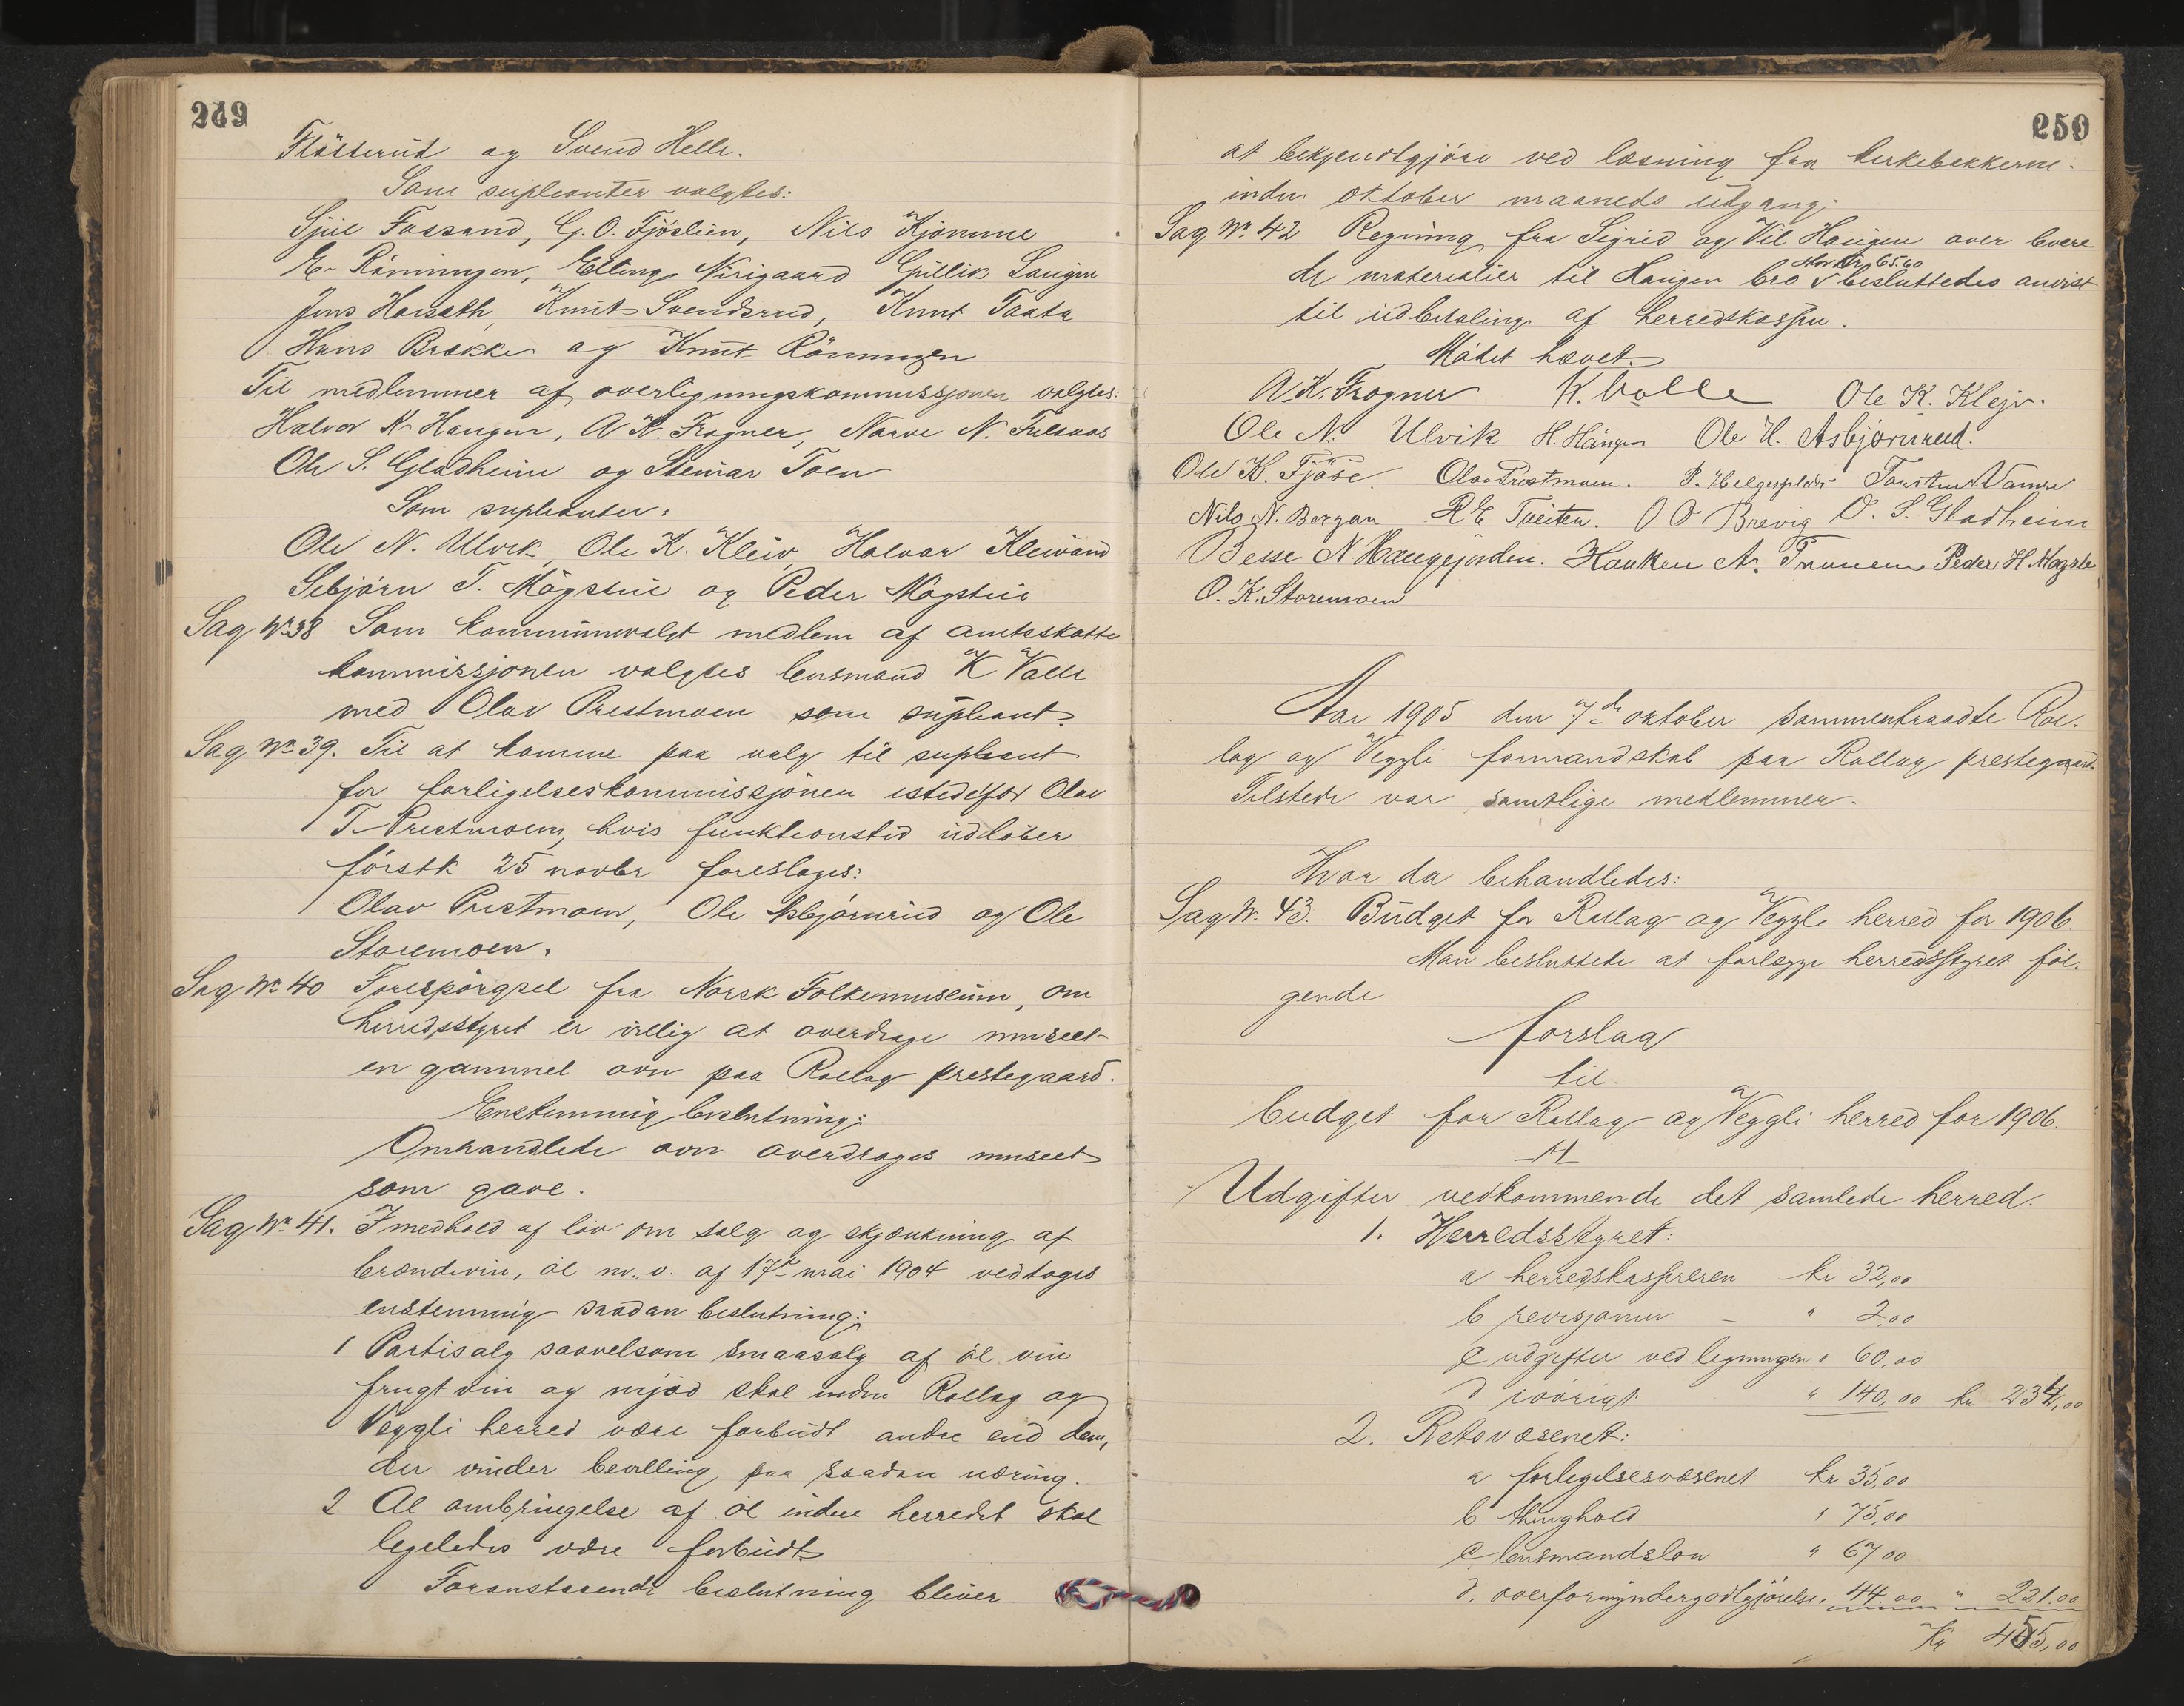 249
Flåtterud og Svend Helle.
Som supleanter valgtes:
Sjul Fossand, G. O. Fjöslien, Nils Kjomme
E. Röningen, Elling Nirigaard Gullik Laugen
Jens Hoiseth, Knut Svendsrud, Knut Taata
Hans Brække og Knut Röningen
Til medlemmer af overligningskommissjonen valgtes:
Halvor K. Haugen, A K. Frogner, Narve N. Fulsaas
Ole S. Gladheim og Steinar Toen
Som supleanter:
Ole N. Ulvik, Ole K. Kleiv, Halvor Kleivand
Sebjörn T. Mögstue og Peder Mögstue
Sag Nr 38 Som kommunevalgt medlem af amtsskatte
kommissjonen valgtes lensmand K Valle
med Olav Prestmoen som supleant.
Sag Nr 39. Til at komme paa valg til supleant
for forligelseskommissjonen istedetfor Olav
T. Prestmoen, hvis funktionstid udlöber
förstk 25 novbr foreslages:
Olav Prestmoen, Ole Asbjörnrud og Ole
Storemoen.
Sag Nr 40 Forespörgsel fra Norsk Folkemuseum, om
herredsstyret er villig at overdrage museet
en gammel ovn paa Rollag prestegaard.
Enstemmig beslutning:
Omhandlede ovn overdrages museet
som gave.
Sag Nr 41. I medhold af lov om salg og skjænkning af
brændevin, öl m. v. af 17de mai 1904 vedtoges
enstemmig saadan beslutning:
1 Partisalg saavelsom smaasalg af öl vin
frugtvin og mjød skal inden Rollag og
Veggli herred være forbudt andre end dem,
der vinder bevilling paa saadan næring.
2 Al ombringelse af öl inden herredet skal
legeledes være forbudt
Foranstaaende beslutning bliver
250
at bekjendtgjöre ved læsning fra kirkebakkerne
inden oktober maaneds udgang.
Sag Nr 42 Regning fra Sigrid og Vil Haugen over levere
stor kr. 65.60
de materialier til Haugen bro besluttedes anvist
til udbetaling af herredskassen.
Mødet hævet.
A. K. Frogner K. Valle Ole K. Klejv.
Ole N. Ulvik H. Haugen Ole H. Asbjørnrud.
Ole K. Fjøse. Olav Prestmoen. P. Helgesplads Torsten Vamen
Nils N. Bergan R E Tveiten. O O Brevig O. S. Gladheim
Besse N. Haugejorden. Hauken A. Traaen Peder H. Magste
O. K. Storemoen
Aar 1905 den 7de oktober sammentraadte Rol-
lag og Veggli formandskab paa Rollag prestegaard.
Tilstede var samtlige medlemmer.
Hvor da behandledes:
Sag Nr. 43. Budget for Rollag og Veggli herred for 1906.
Man besluttede at forlægge herredsstyret föl-
gende
forslag
til
budget for Rollag og Veggli herred for 1906.
A
Udgifter vedkommende det samlede herred.
1. Herredsstyret:
a herredskasseren kr 32,00
b revisjonen - " 2,00
c udgifter ved ligningen " 60,00
d iøvrigt " 140,00 kr 234,00
2. Retsvæsenet:
a forligelsesvæsenet kr 35,00
b thinghold " 75,00
c lensmandslön " 67,00
d. overformyndergodtgjörelse " 44.00 " 221.00
Kr 455,00